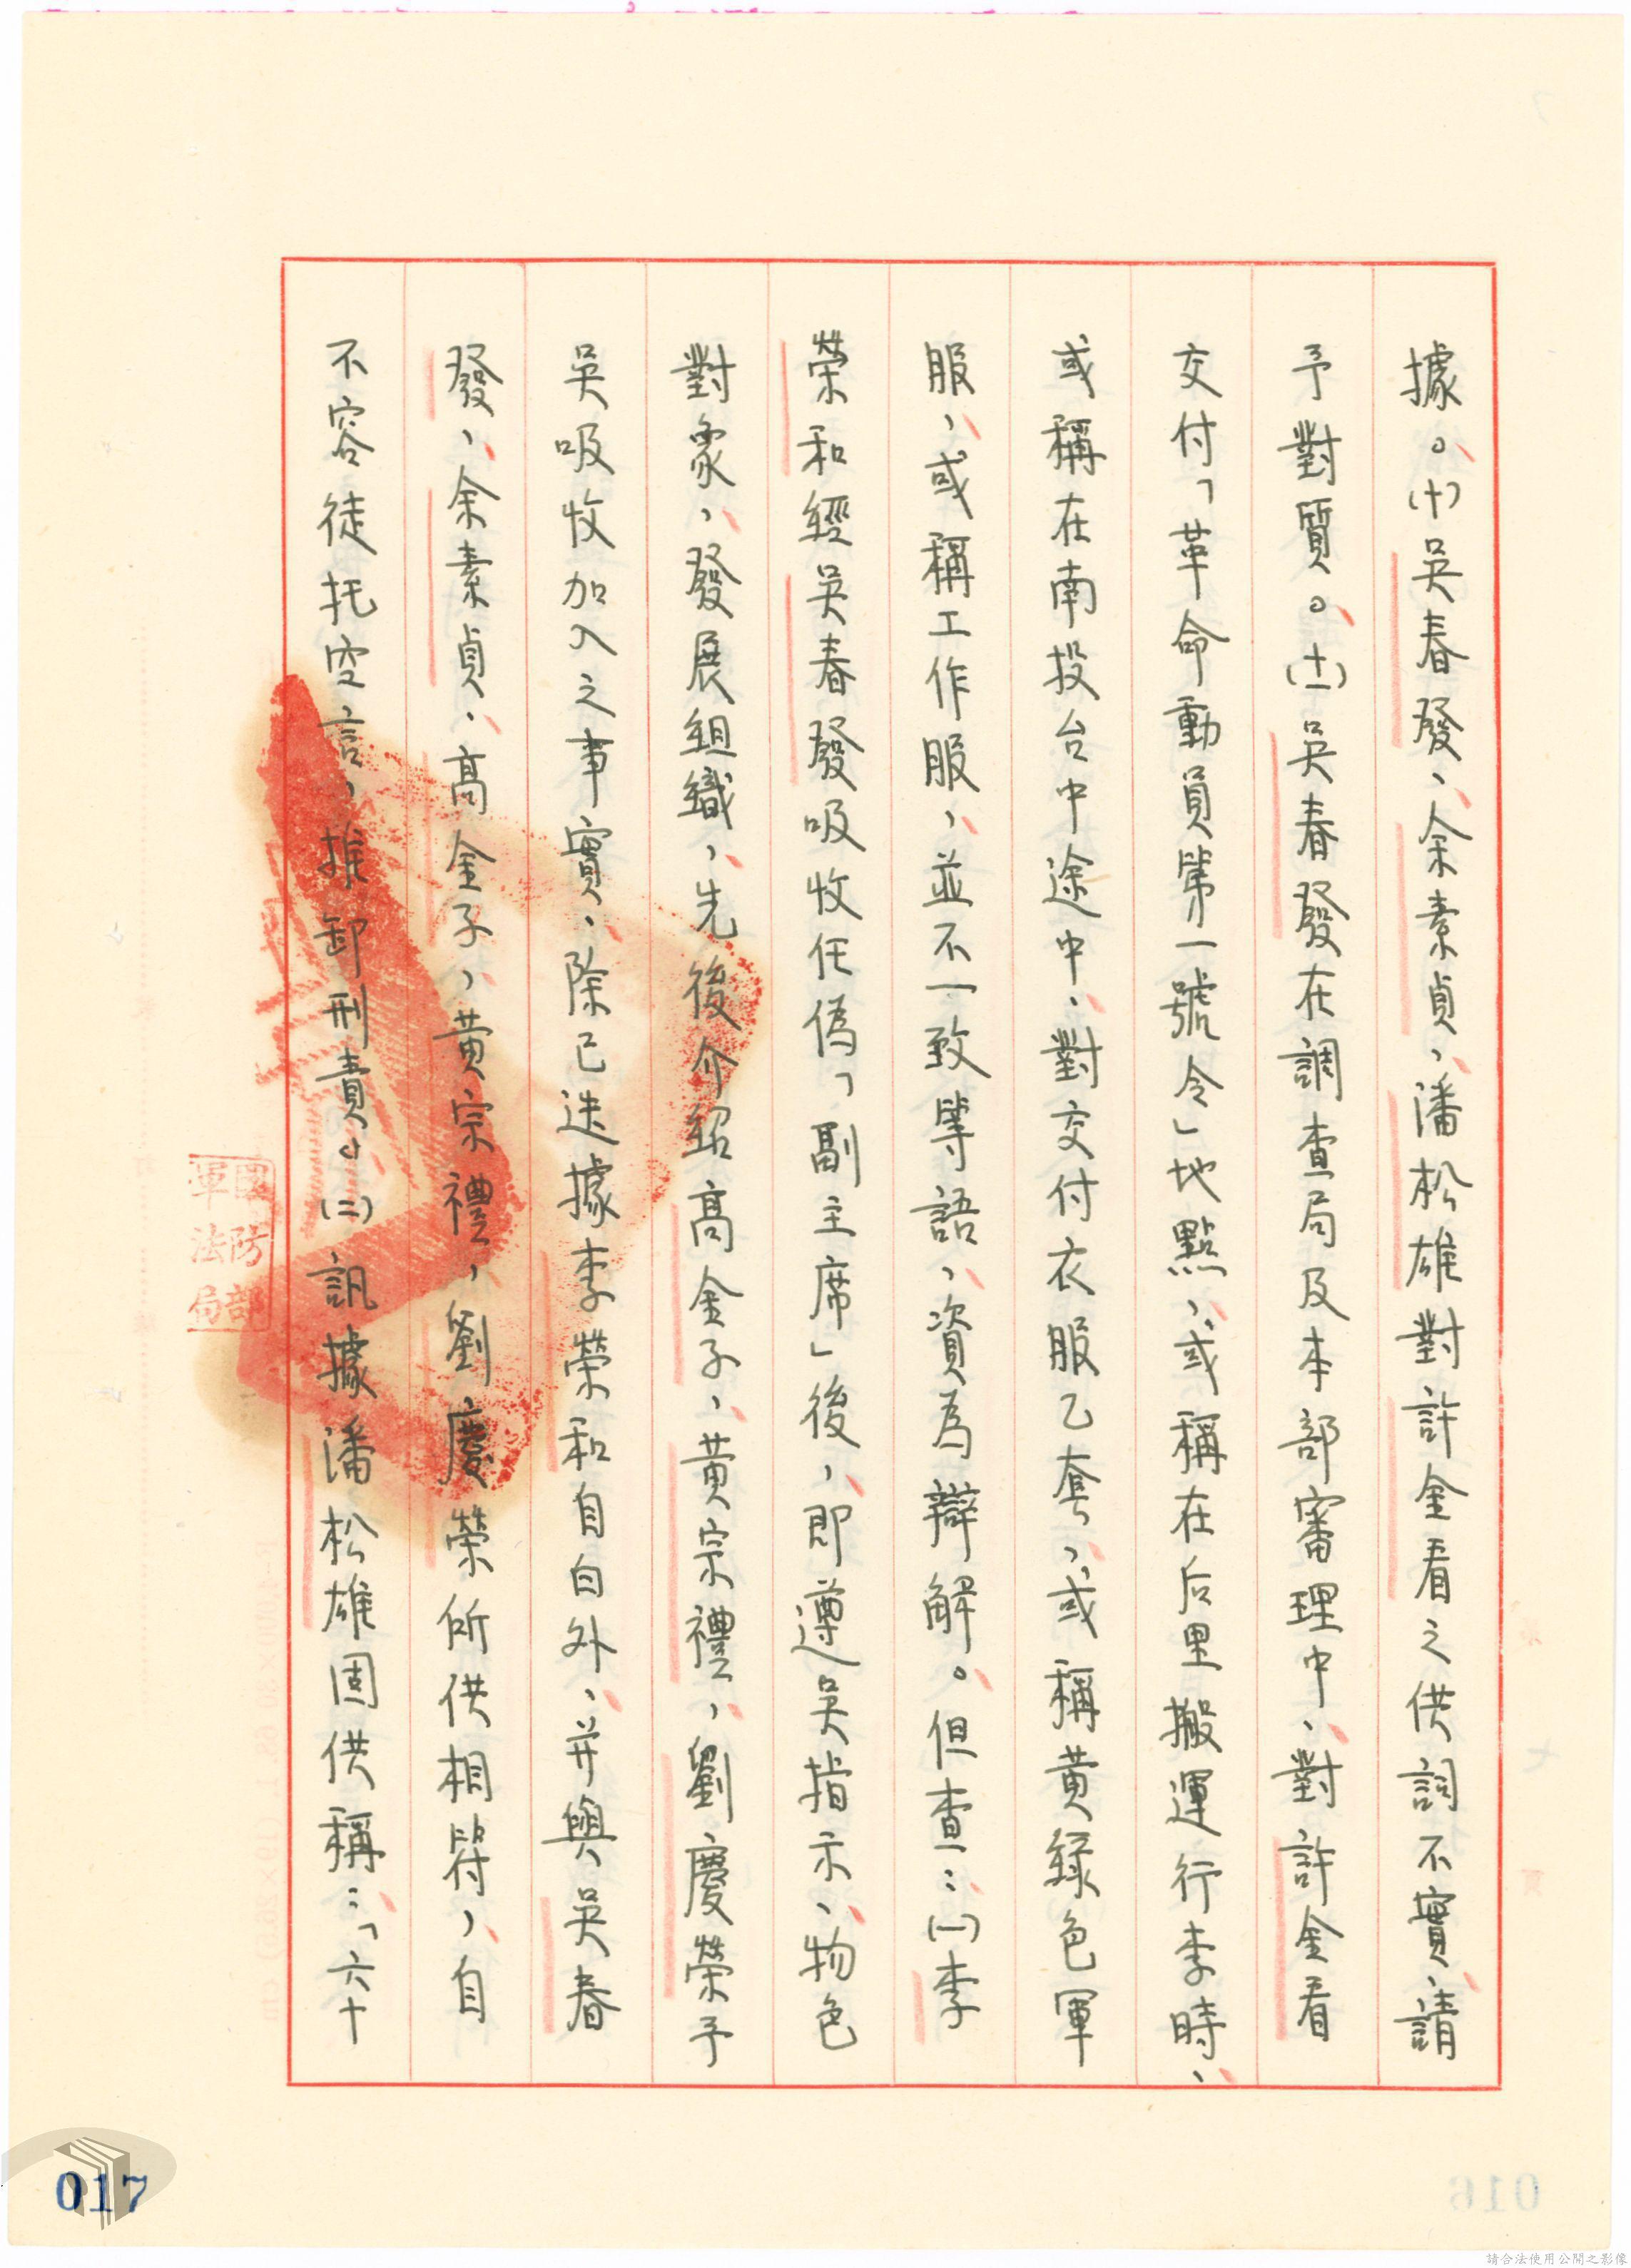 據。(十)吳春發、余素貞、潘松雄對許金看之供詞不實、請
予對質。(十一)吳春發在調查局及本部審理中、對許金看
交付「革命動員第一號令」地點、或稱在后里搬運行李時、
或稱在南投台中途中、對交付衣服乙套、或稱黃綠色軍
服、或稱工作服、並不一致等語、資為辯解。但查：(一)李
榮和經吳春發吸收任偽「副主席」後、即遵吳指示、物色
對象、發展組織、先後介紹高金子、黃宗禮、劉慶榮予
吳吸收加入之事實、除已迭據李榮和自白外、并與吳春
發、余素貞、高金子、黃宗禮、劉慶榮所供相符、自
不容徒托空言、推卸刑責。(二)訊據潘松雄固供稱：「六十
國防部
軍法局
017
016
請合法使用公開之影像